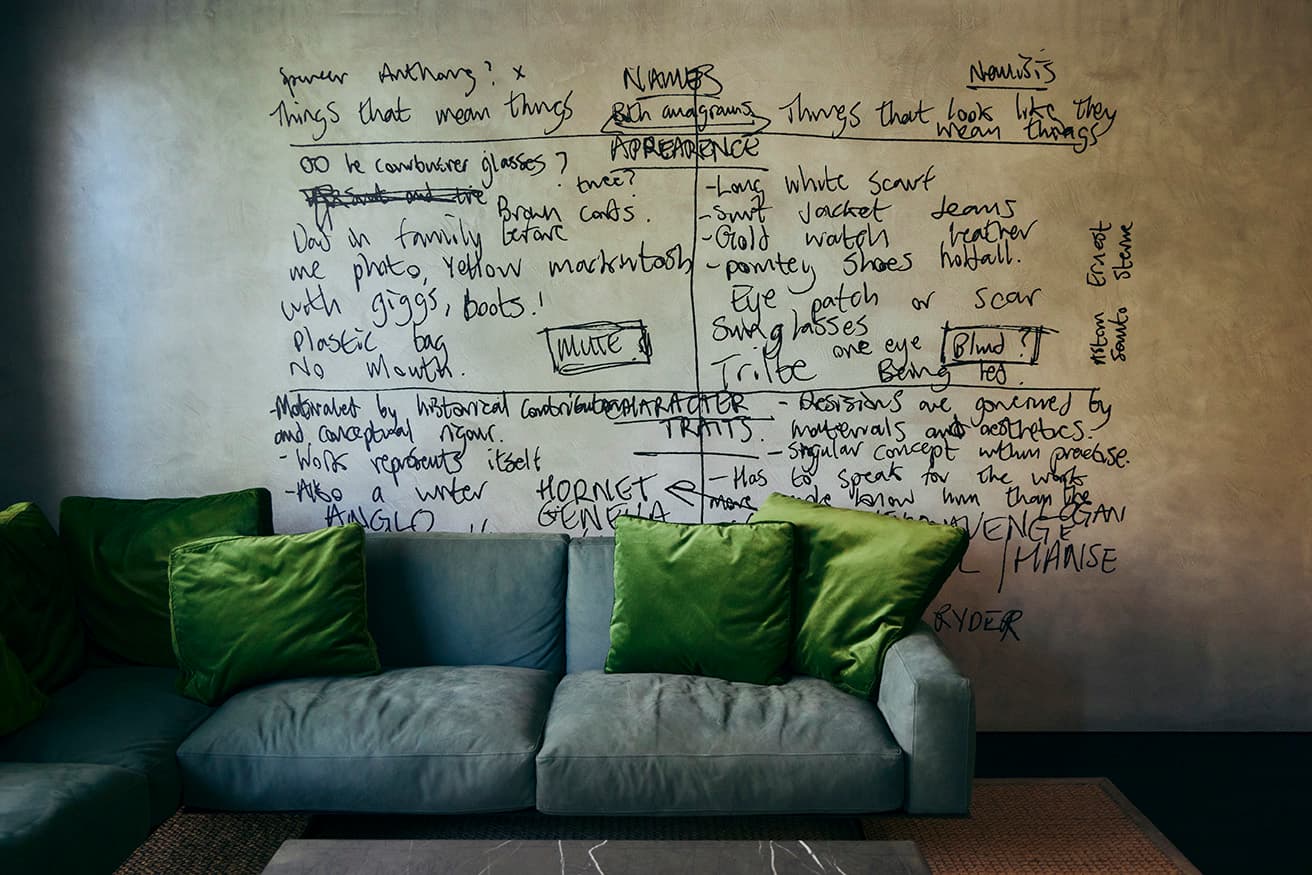 Spencer Anthony? x
NAMES
Nemisis
Things that mean things
Both anagrams
Things that look like they
mean things
APPEARENCE
OO le corbusier glasses?
twee?
Brown cords.
Dad in family before
me photo, Yellow mackintosh
with giggs, boots!
Plastic bag
No Mouth.
MUTE?
-Long white scarf
-Suit Jacket Jeans
-Gold watch leather
-pointey shoes holdall.
Eye patch or scar
Sunglasses
one eye
Blind?
Trilbe Being led.
Ernest
Sterne
Aston
Santo
-Motivated by historical contribution
and conceptual rigour.
-Work represents itself
-Also a writer
CHARACTER
TRAITS.
-Desisions are governed by
materials and aesthetics.
-Singular concept within practise.
-Has to speak for the work
more people know him than the
HORNET
GENEVA
ANGLO
VENGE
EGAN
/MANSE
RYDER